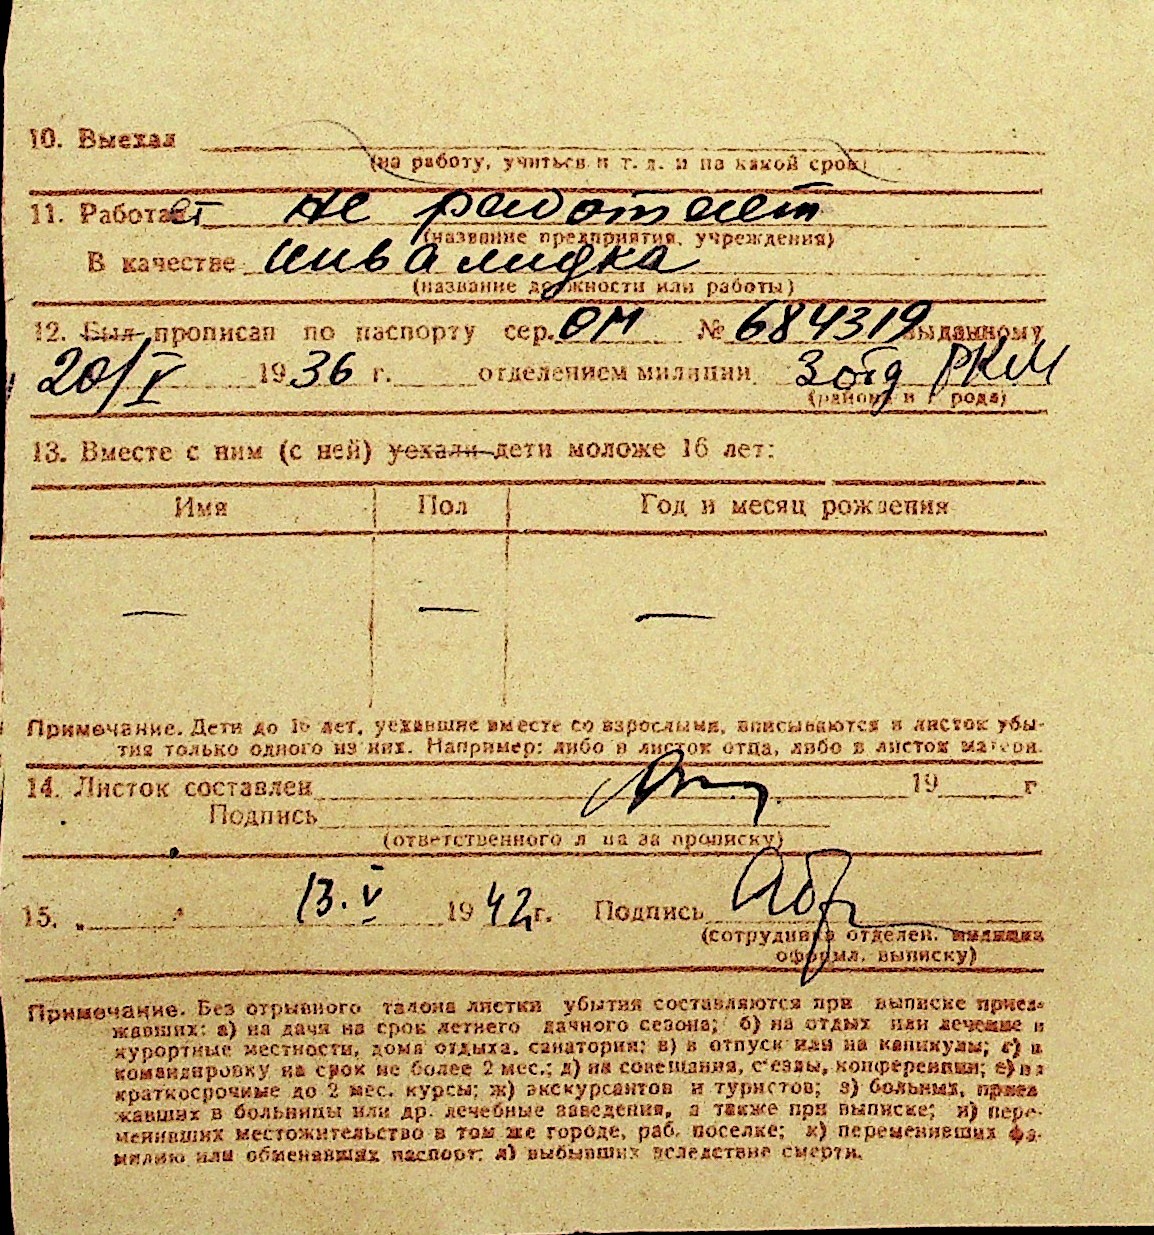 10. Выехал
(на работу, учиться и т. д. и на какой срок)
11. Работает не работает
(название предприятия, учреждения)
В качестве инвалидка
(название должности или работы)
12. Был прописан по паспорту сер. ОМ № 684319 выданному
20/V 1936 г. отделением милиции 3 отд РКМ
(района и города)
13. Вместе с ним (с ней) уехали дети моложе 16 лет:
Имя Пол Год и месяц рождения
— — —
Примечание. Дети до 16 лет, уехавшие вместе со взрослыми, вписываются в листок убы-
тия только одного из них. Например: либо в листок отца, либо в листок матери.
14. Листок составлен 19 г
Подпись
(ответственного лица за прописку)
15. „ “ 13.V 1942 г. Подпись
(сотрудника отделен. милиции
оформл. выписку)
Примечание. Без отрывного талона листки убытия составляются при выписке приез-
жавших: а) на дачи на срок летнего дачного сезона; б) на отдых или лечение в
курортные местности, дома отдыха, санатории; в) в отпуск или на каникулы; г) в
командировку на срок не более 2 мес.; д) на совещания, с'езды, конференции; е) на
краткосрочные до 2 мес. курсы; ж) экскурсантов и туристов; з) больных, приез
жавших в больницы или др. лечебные заведения, а также при выписке; и) пере-
менивших местожительство в том же городе, раб. поселке; к) переменивших фа-
милию или обменявших паспорт; л) выбывших вследствие смерти.